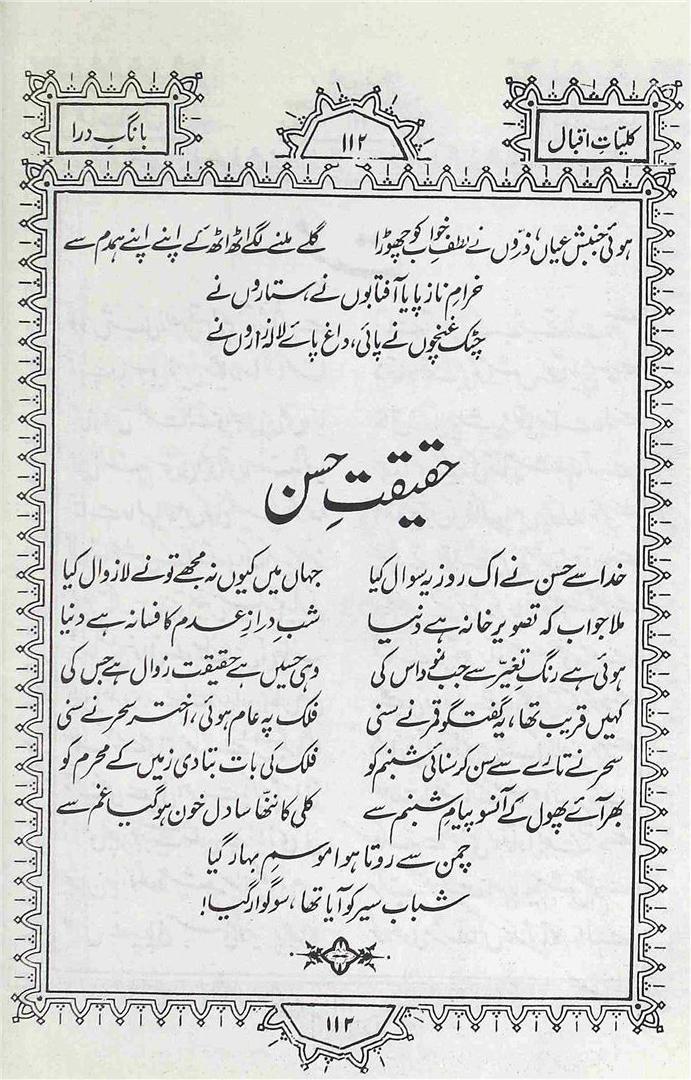 کلیاتِ اقبال
۱۱۲
بانگِ درا
ہوئی جنبش عیاں، ذرّوں نے لطفِ خواب کو چھوڑا گلے ملنے لگے اٹھ اٹھ کے اپنے اپنے ہمدم سے
خرامِ ناز پایا آفتابوں نے، ستاروں نے
چٹک غنچوں نے پائی، داغ پائے لالہ زاروں نے
حقیقتِ حسن
خدا سے حسن نے اک روز یہ سوال کیا جہاں میں کیوں نہ مجھے تو نے لازوال کیا
ملا جواب کہ تصویر خانہ ہے دنیا شبِ درازِ عدم کا فسانہ ہے دنیا
ہوئی ہے رنگِ تغیّر سے جب نمود اس کی وہی حسیں ہے حقیقت زوال ہے جس کی
کہیں قریب تھا، یہ گفتگو قمر نے سنی فلک پہ عام ہوئی، اخترِ سحر نے سنی
سحر نے تارے سے سن کر سنائی شبنم کو فلک کی بات بتا دی زمیں کے محرم کو
بھر آئے پھول کے آنسو پیامِ شبنم سے کلی کا ننھا سا دل خون ہو گیا غم سے
چمن سے روتا ہوا موسمِ بہار گیا
شباب سیر کو آیا تھا، سوگوار گیا!
۱۱۲